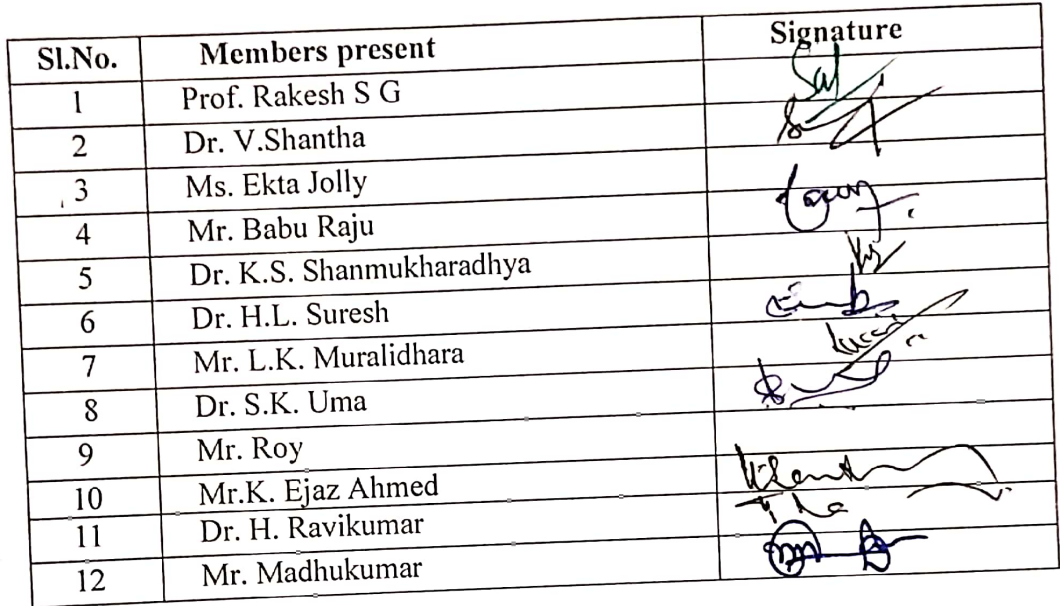 Sl.No. Members present Signature
1 Prof. Rakesh S G
2 Dr. V.Shantha
3 Ms. Ekta Jolly
4 Mr. Babu Raju
5 Dr. K.S. Shanmukharadhya
6 Dr. H.L. Suresh
7 Mr. L.K. Muralidhara
8 Dr. S.K. Uma
9 Mr. Roy
10 Mr.K. Ejaz Ahmed
11 Dr. H. Ravikumar
12 Mr. Madhukumar